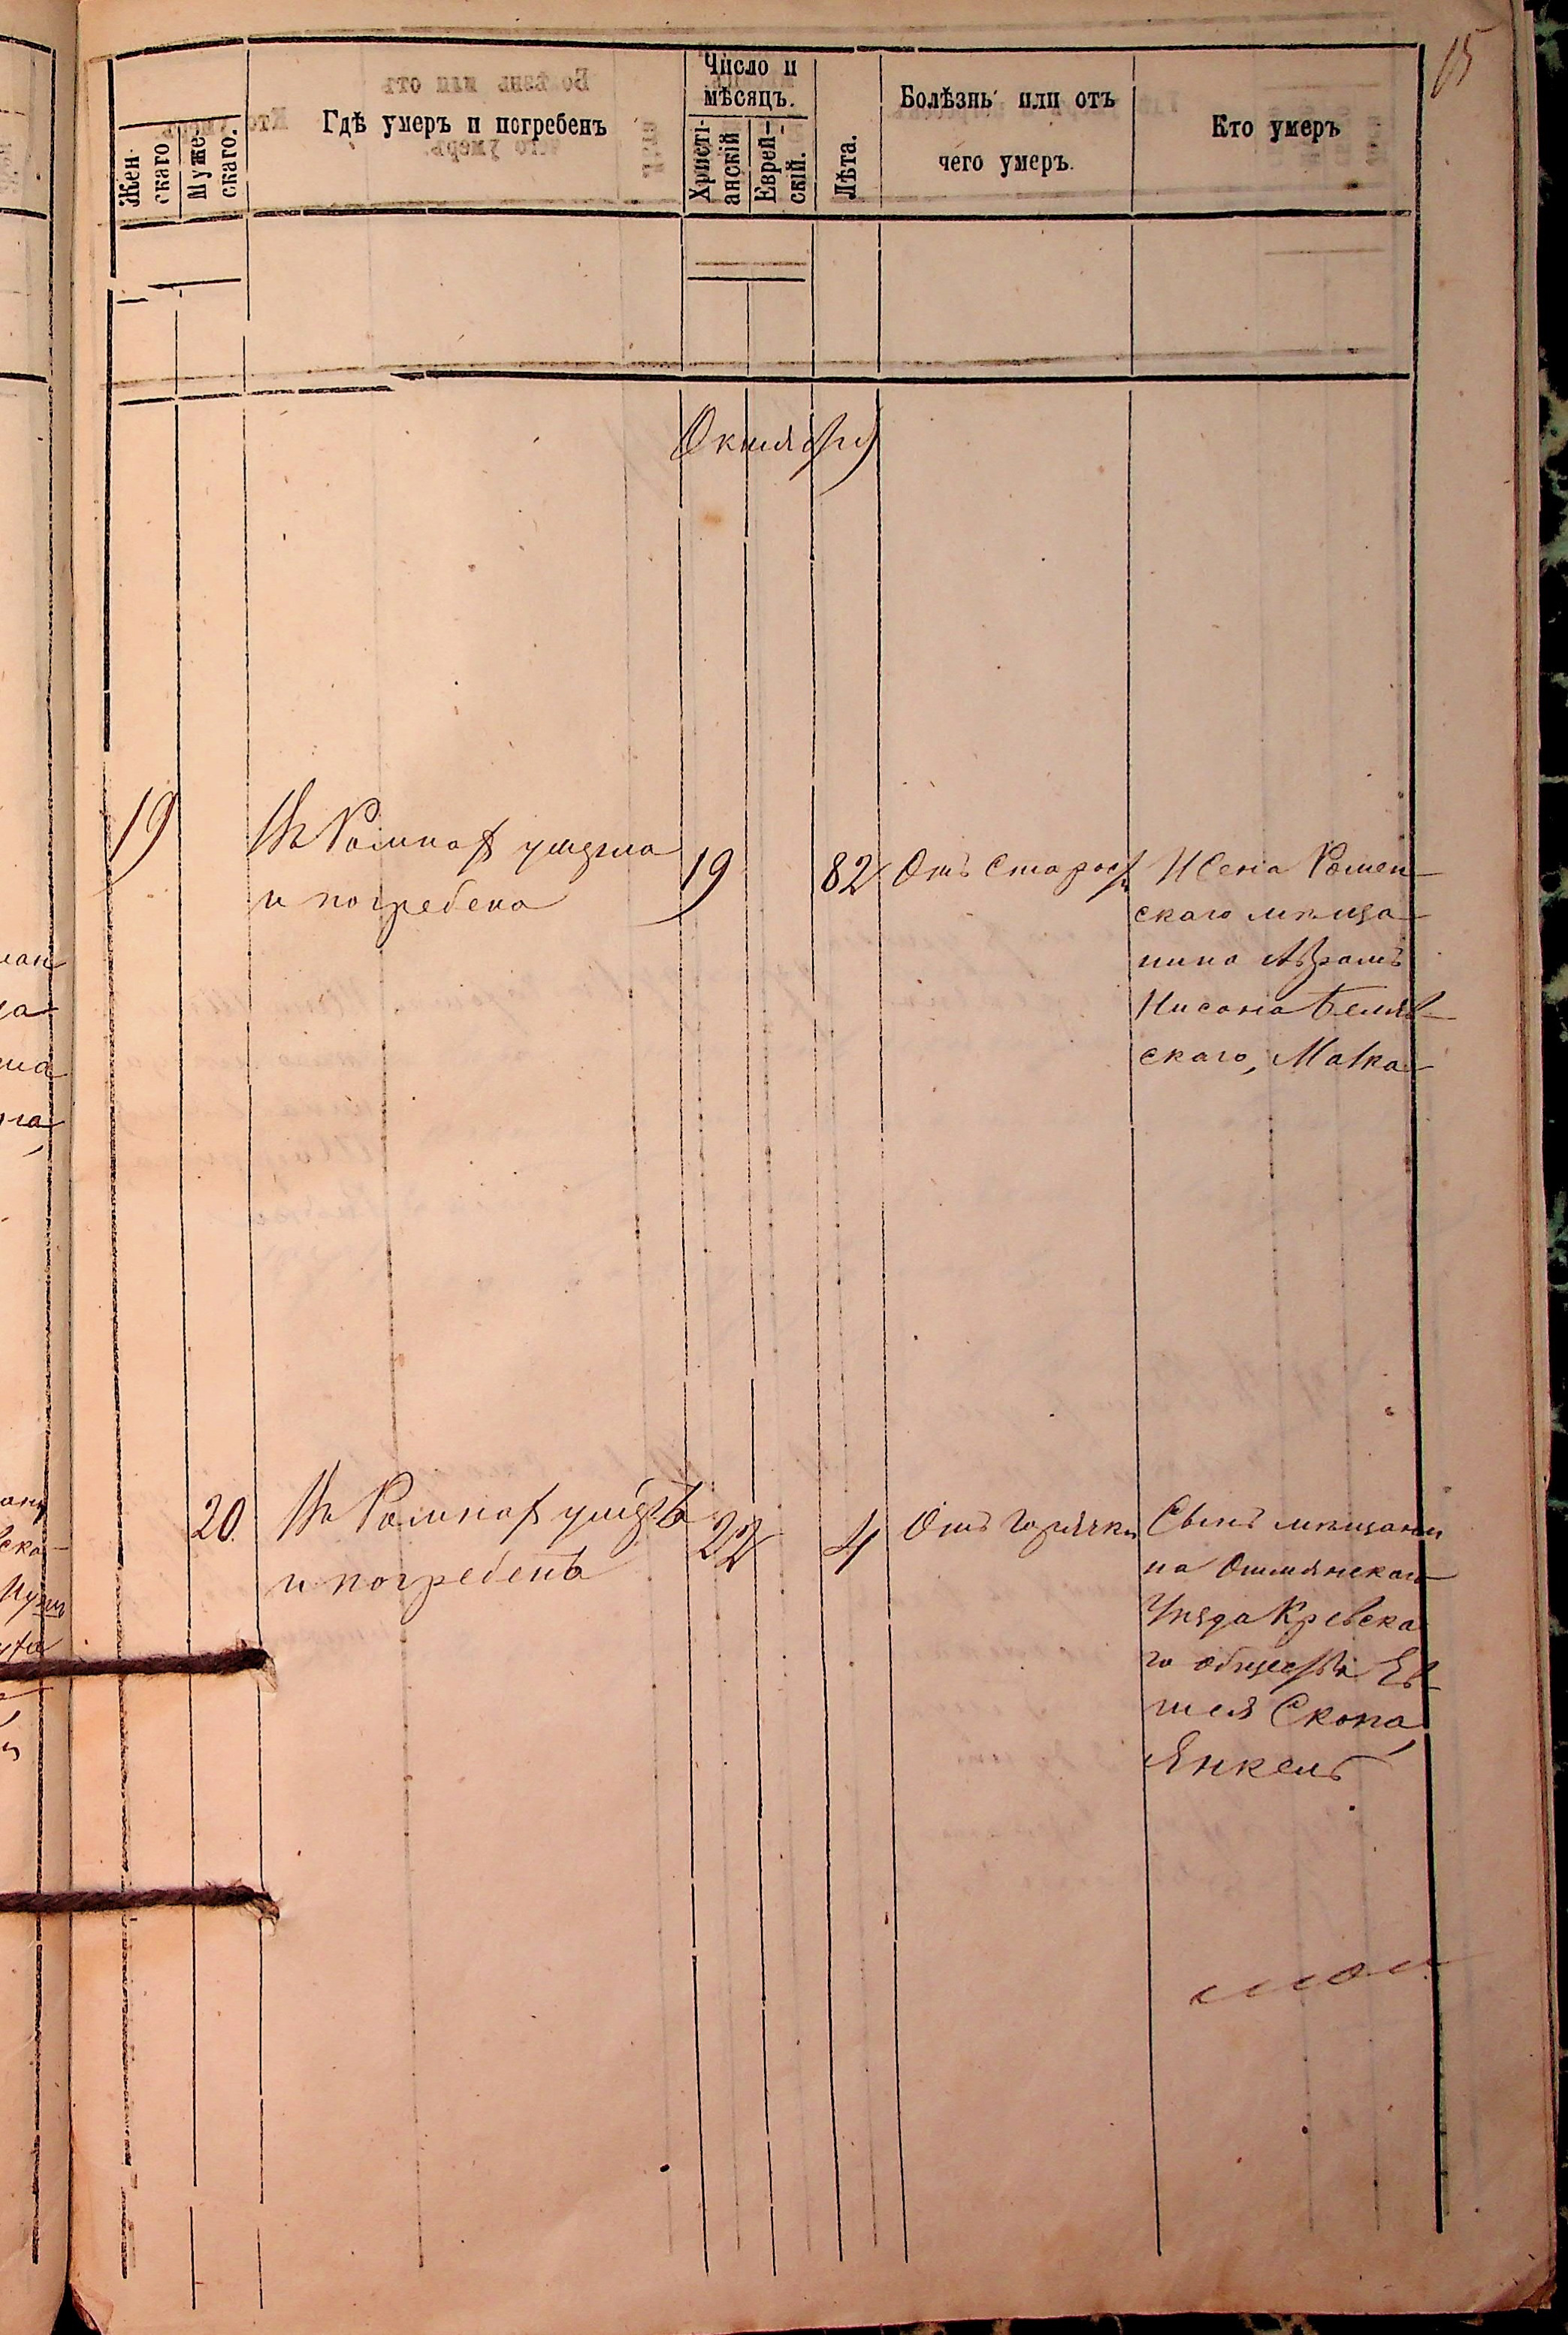 15
Жен-
скаго.
Муже-
скаго.
Гдѣ умеръ и погребенъ
Число и
мѣсяцъ.
Христі-
анскій
Еврей-
скій.
Лѣта.
Болѣзнь или отъ
чего умеръ.
Кто умеръ
Октября
19
Въ Ромнах умерла
и погребена
19
82
Отъ старости
Жена Ромен-
скаго мѣща-
нина Абрамъ
Нисона Беляв-
скаго, Малка
20.
Въ Ромнах умеръ
и погребенъ
22
4
Отъ горячки
Сынъ мѣщани
на Ошмянскаго
Уѣзда Кревска
го общества Ев-
шея Скопа,
Янкель